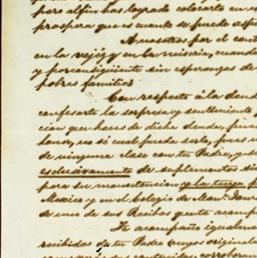 por alfin has logrado colocarte en es
prospera que es cuanto se puede
A nosotros por el cont
en la vejéz y en la miseria, cuando
y por consiguiente sin esperanzas de
pobres familias.
Con respecto á la deud
confesarte la sorpresa y sentimiento
cion que haces de dicha deuda,
honor, no sé cual puede serlo, pues
de ninguna clase con tu Padre, y
esclusivamente de suplementos
para su manutencion y la tuya
Mexico y en el Colegio de
de uno de sus Recibos que te acomp
Te acompaño igualme
recibidas de tu Padre cuyos original